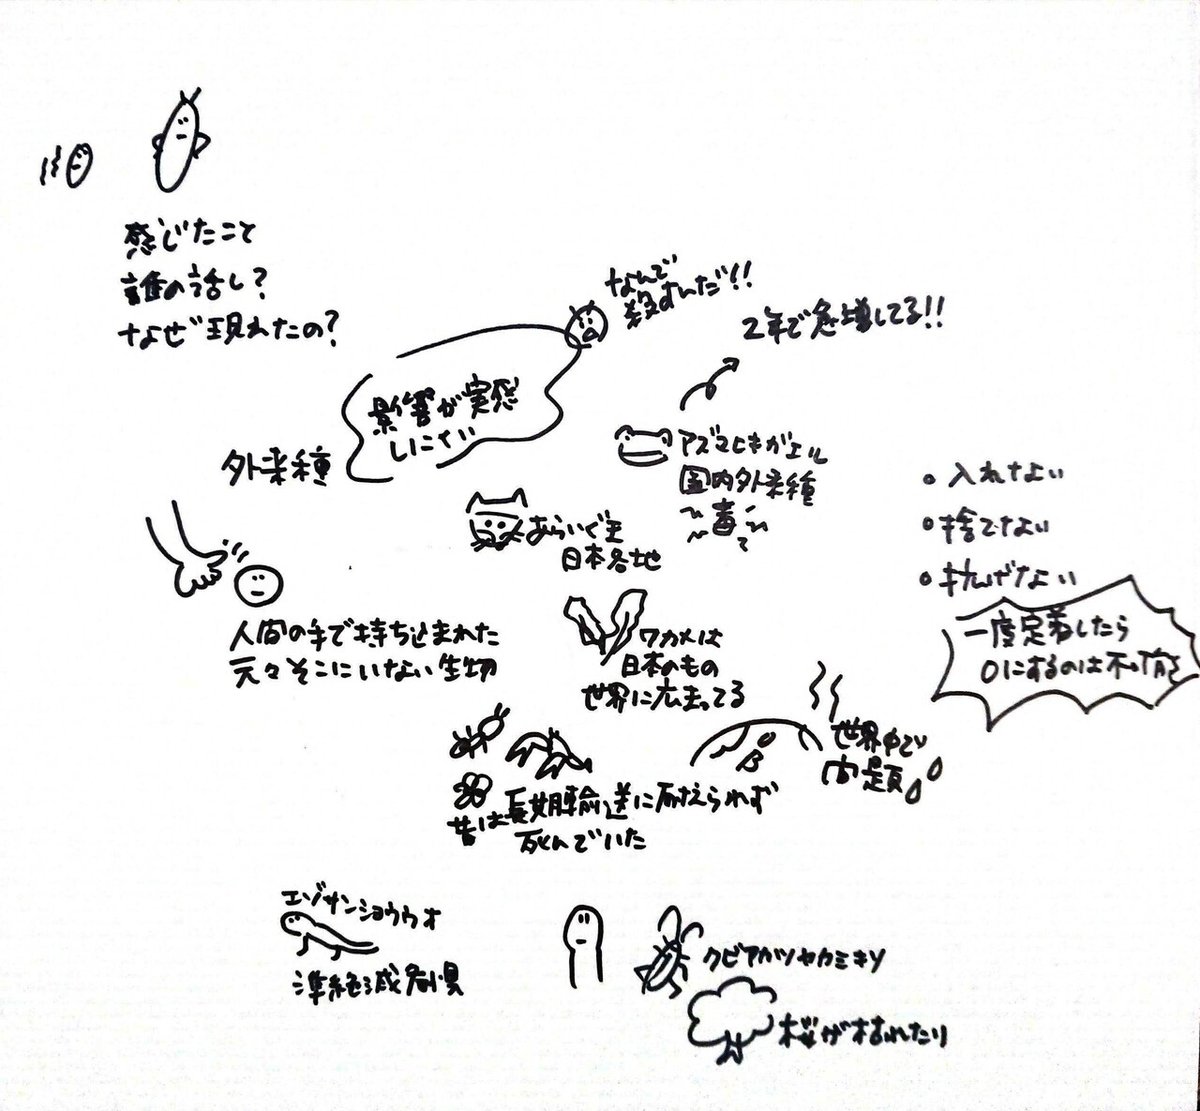 感じたこと
誰の話し?
なぜ現れたの?
なんで
殺すんだ!!
2年で急増してる!!
影響が実感
しにくい
外来種
アズマヒキガエル
国内外来種
毒
あらいぐま
日本各地
人間の手で持ち込まれた
元々そこにいない生物
ワカメは
日本のもの
世界に広まってる
・入れない
・捨てない
・拡げない
一度定着したら
0にするのは不可能
世界中で
問題
昔は長期輸送に耐えられず
死んでいた
エゾサンショウウオ
準絶滅危惧
クビアカツヤカミキリ
桜が枯れたり